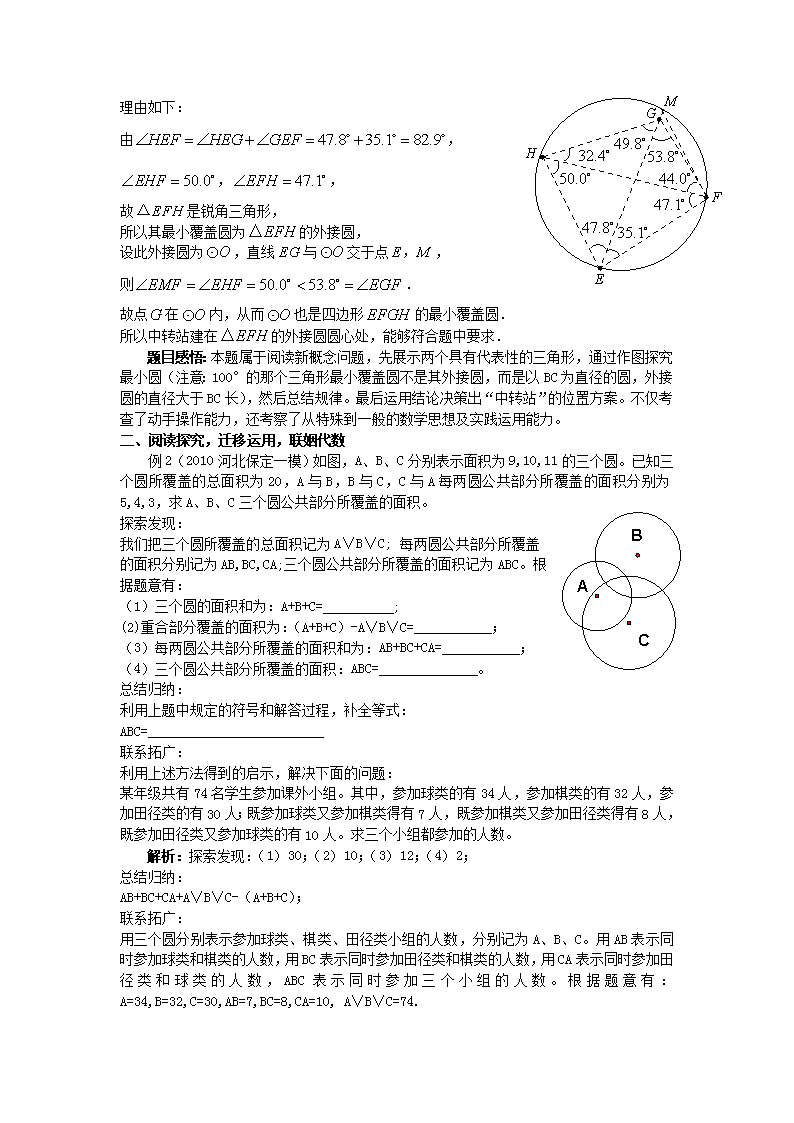 理由如下:
由∠HEF=∠HEG+∠GEF=47.8°+35.1°=82.9°,
∠EHF=50.0°,∠EFH=47.1°,
故△EFH是锐角三角形,
所以其最小覆盖圆为△EFH的外接圆,
设此外接圆为⊙O,直线EG与⊙O交于点E,M,
则∠EMF=∠EHF=50.0°<53.8°=∠EGF.
故点G在⊙O内,从而⊙O也是四边形EFGH的最小覆盖圆.
所以中转站建在△EFH的外接圆圆心处,能够符合题中要求.
M
G
H
49.8°
32.4°
53.8°
50.0°
44.0°
F
47.1°
47.8°
35.1°
E
题目感悟:本题属于阅读新概念问题,先展示两个具有代表性的三角形,通过作图探究
最小圆(注意:100°的那个三角形最小覆盖圆不是其外接圆,而是以BC为直径的圆,外接
圆的直径大于BC长),然后总结规律。最后运用结论决策出“中转站”的位置方案。不仅考
查了动手操作能力,还考察了从特殊到一般的数学思想及实践运用能力。
二、阅读探究,迁移运用,联姻代数
例2(2010河北保定一模)如图,A、B、C分别表示面积为9,10,11的三个圆。已知三
个圆所覆盖的总面积为20,A与B,B与C,C与A每两圆公共部分所覆盖的面积分别为
5,4,3,求A、B、C三个圆公共部分所覆盖的面积。
探索发现:
我们把三个圆所覆盖的总面积记为A∨B∨C; 每两圆公共部分所覆盖
的面积分别记为AB,BC,CA;三个圆公共部分所覆盖的面积记为ABC。根
据题意有:
(1)三个圆的面积和为:A+B+C=__________;
(2)重合部分覆盖的面积为:(A+B+C)-A∨B∨C=___________;
(3)每两圆公共部分所覆盖的面积和为:AB+BC+CA=___________;
(4)三个圆公共部分所覆盖的面积:ABC=______________。
B
A
C
总结归纳:
利用上题中规定的符号和解答过程,补全等式:
ABC=_________________________
联系拓广:
利用上述方法得到的启示,解决下面的问题:
某年级共有74名学生参加课外小组。其中,参加球类的有34人,参加棋类的有32人,参
加田径类的有30人;既参加球类又参加棋类得有7人,既参加棋类又参加田径类得有8人,
既参加田径类又参加球类的有10人。求三个小组都参加的人数。
解析:探索发现:(1)30;(2)10;(3)12;(4)2;
总结归纳:
AB+BC+CA+A∨B∨C-(A+B+C);
联系拓广:
用三个圆分别表示参加球类、棋类、田径类小组的人数,分别记为A、B、C。用AB表示同
时参加球类和棋类的人数,用BC表示同时参加田径类和棋类的人数,用CA表示同时参加田
径类和球类的人数,ABC表示同时参加三个小组的人数。根据题意有:
A=34,B=32,C=30,AB=7,BC=8,CA=10, A∨B∨C=74.